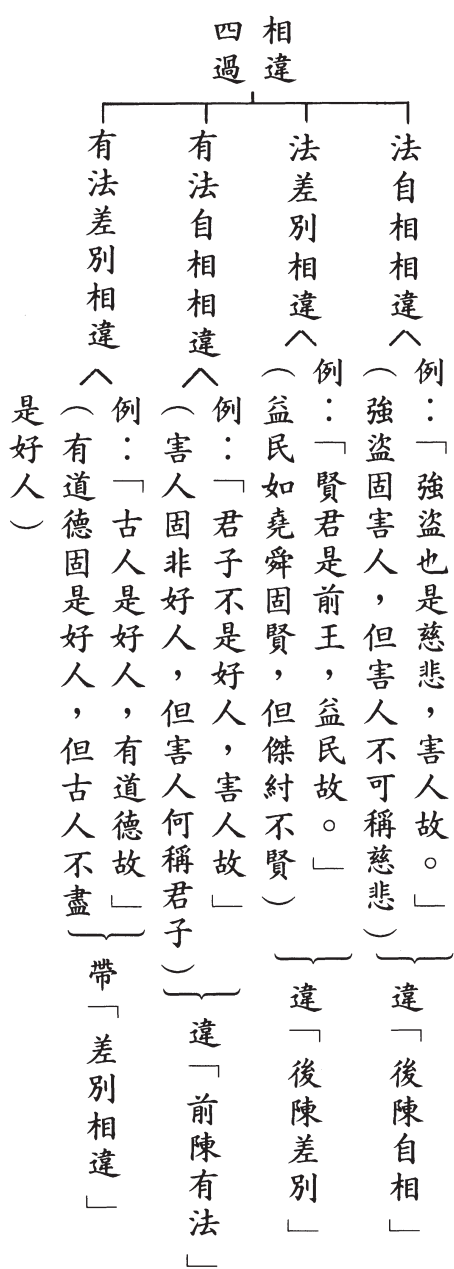 相違
四過
法自相相違
例：「強盜也是慈悲，害人故。」
（強盜固害人，但害人不可稱慈悲）
違「後陳自相」
法差別相違
例：「賢君是前王，益民故。」
（益民如堯舜固賢，但傑紂不賢）
違「後陳差別」
有法自相相違
例：「君子不是好人，害人故」
（害人固非好人，但害人何稱君子）
違「前陳有法」
有法差別相違
例：「古人是好人，有道德故」
（有道德固是好人，但古人不盡
是好人）
帶「差別相違」